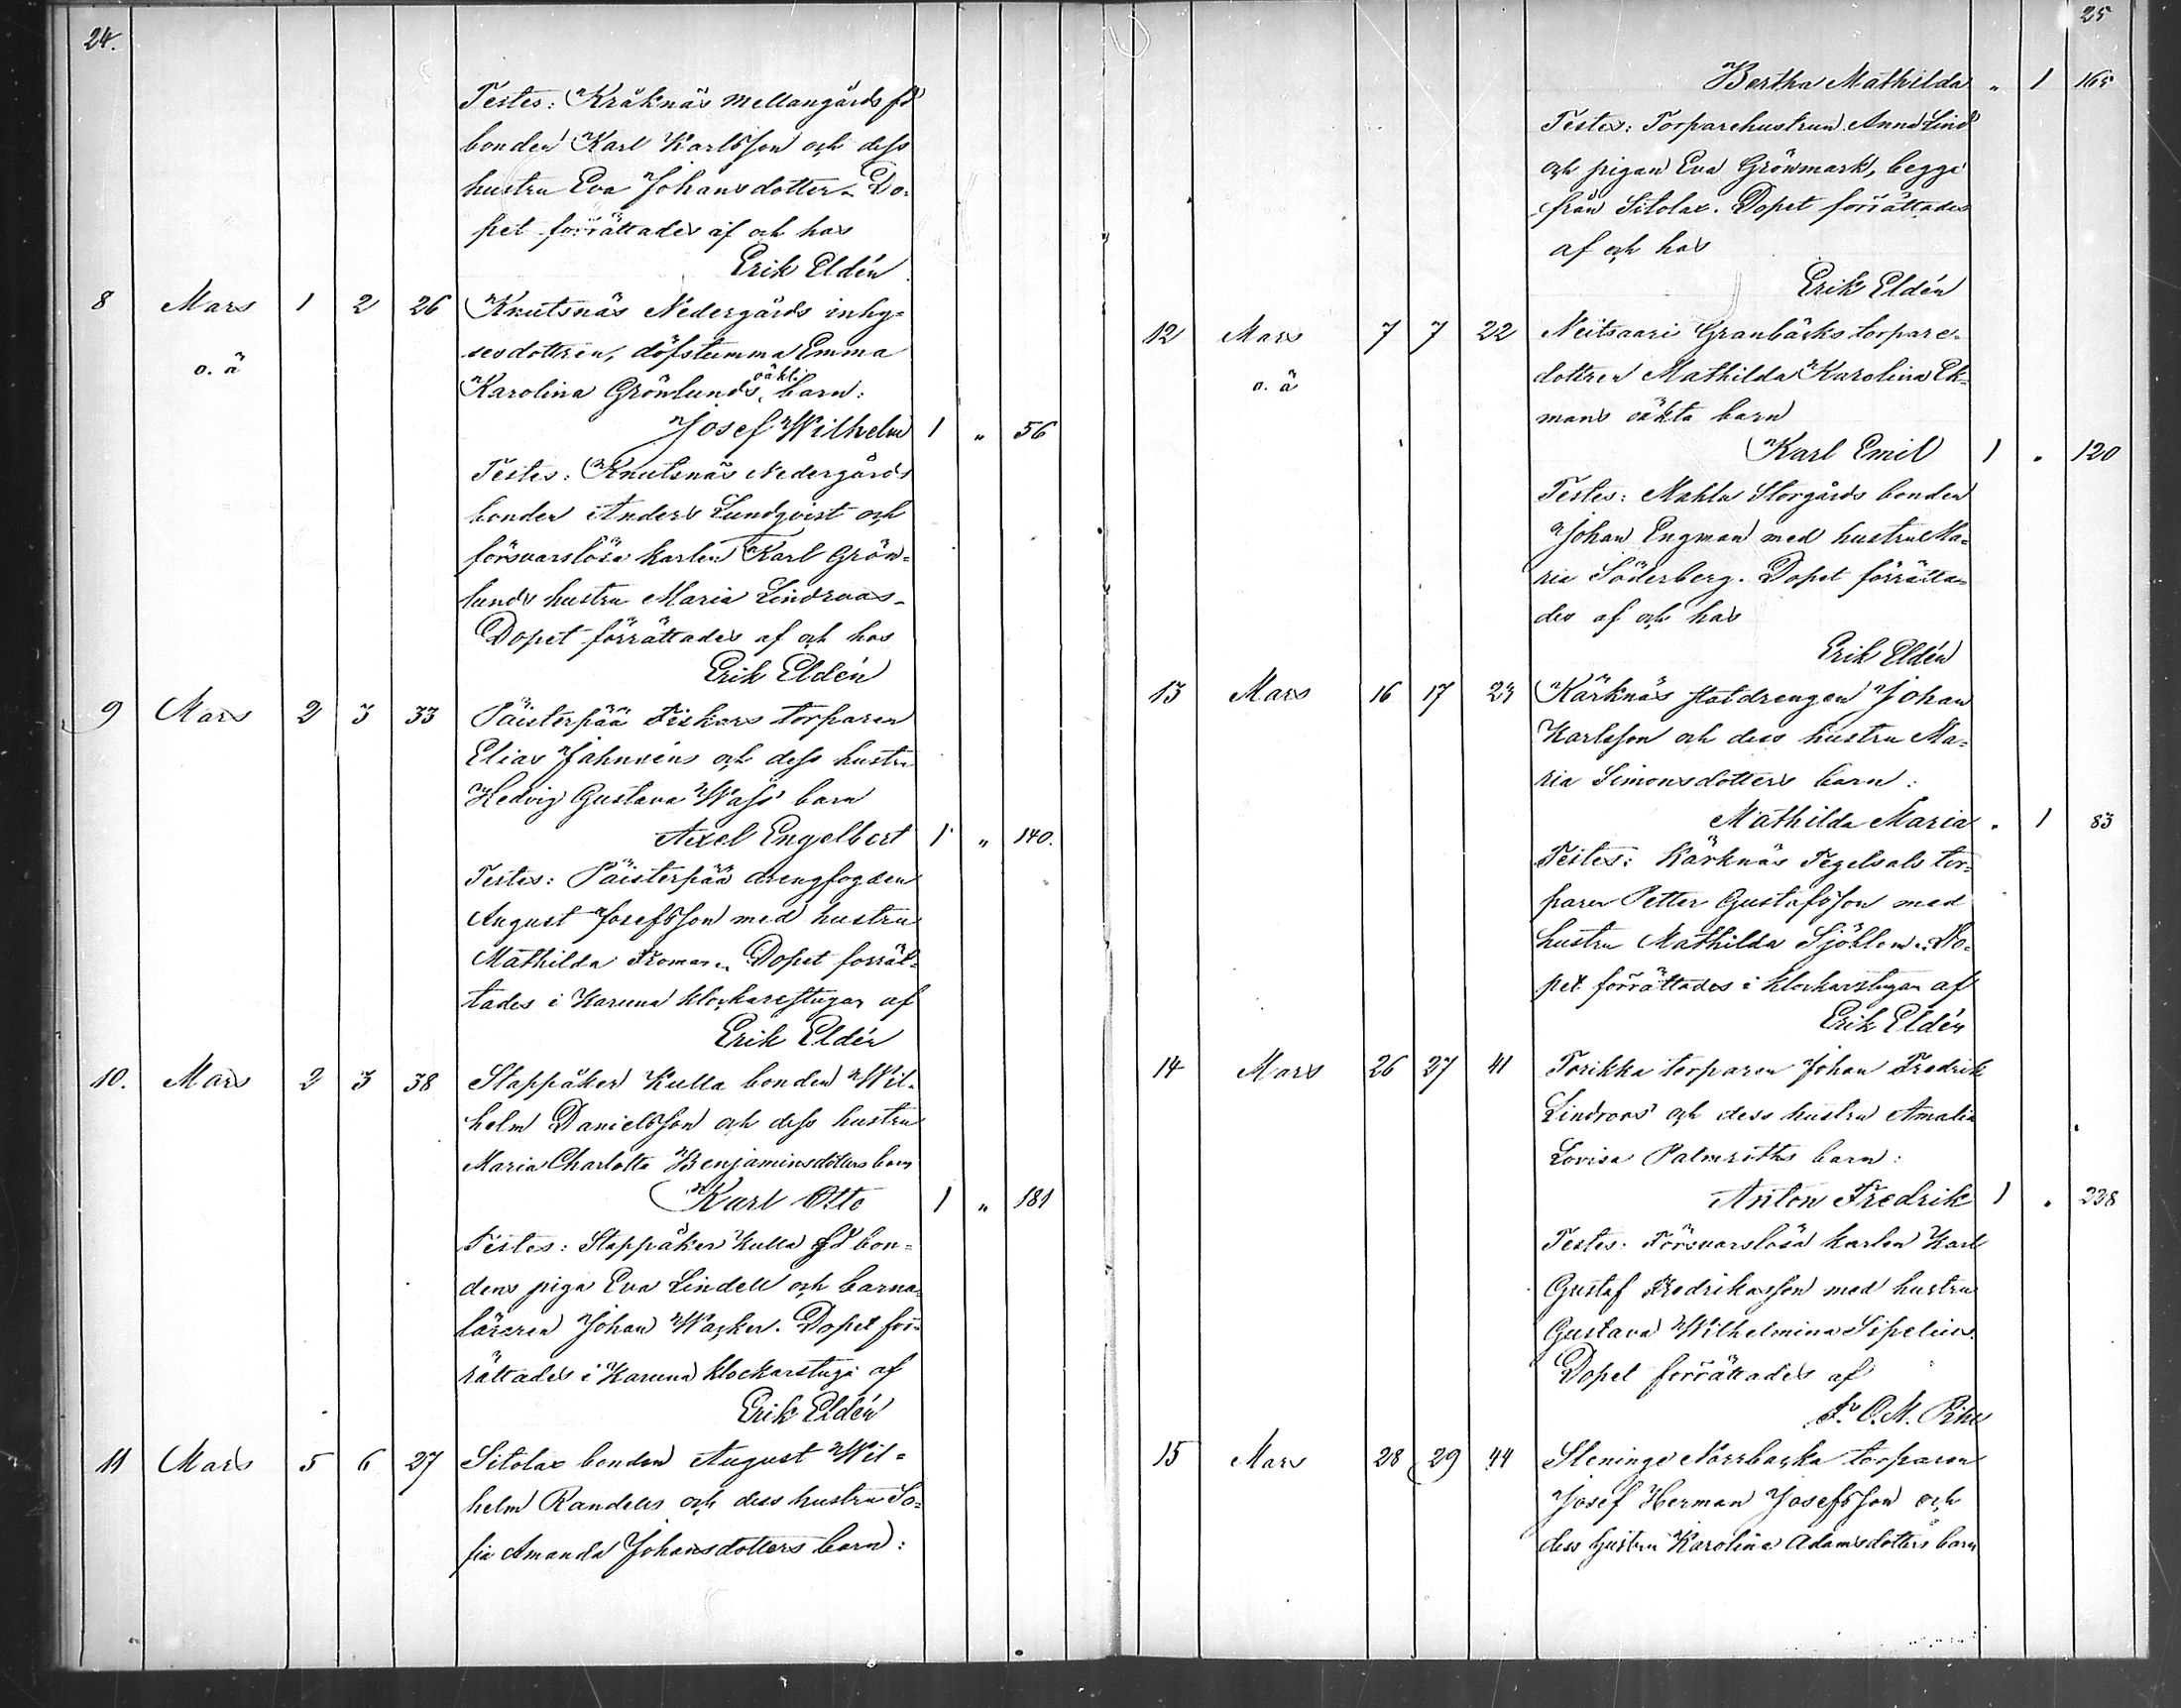 24.
Testes: Kråknäs Mellangårds fd
bonden Karl Karlsson och dess
hustru Eva Johansdotter. Do-
pet förrättades af och hos
Erik Eldén
8 Mars 1 2 26 Knutsnäs Nedergårds inhy-
o. ä sesdottren, döfstumma Emma
Karolina Grönlunds oäkt. barn:
Josef Wilhelm 1 " 56
Testes: Knutsnäs Nedergårds
bonden Anders Lundqvist och
försvarslöse karlen Karl Grön-
lunds hustru Maria Lindroos.
Dopet förrättades af och hos
Erik Eldén
9 Mars 2 3 33 Päisterpää Fiskars torparen
Elias Jahnséns och dess hustru
Hedvig Gustava Wass barn
Axel Engelbert 1 " 140.
Testes: Päisterpää drengfogden
August Josefsson med hustru
Mathilda Froman. Dopet förrät-
tades i Karuna klockarestugan af
Erik Eldén
10. Mars 2 3 38 Stappåker Kulla bonden Wil-
helm Danielsson och dess hustru
Maria Charlotta Benjaminsdotters barn
Karl Otto 1 " 181
Testes: Stappåker Kulla fd bon-
dens piga Eva Lindell och barna-
läraren Johan Wacker. Dopet för-
rättades i Karuna klockarstuga af
Erik Eldén
11 Mars 5 6 27 Sitolax bonden August Wil-
helm Randells och dess hustru So-
fia Amanda Johansdotters barn:
25
Bertha Mathilda " 1 165
Testes: Torparehustrun Anna Lind
och pigan Eva Grönmark, begge
från Sitolax. Dopet förrättades
af och hos
Erik Eldén
12 Mars 7 7 22 Neitsaari Granbäcks torpare-
o. ä dottren Mathilda Karolina Ek-
mans oäkta barn
Karl Emil 1 " 120
Testes: Mahlu Storgårds bonden
Johan Engman med hustru Ma-
ria Söderberg. Dopet förrätta-
des af och hos
Erik Eldén
13 Mars 16 17 23 Kärknäs statdrengen Johan
Karlsson och dess hustru Ma-
ria Simonsdotters barn:
Mathilda Maria " 1 83
Testes: Kärknäs Tegelsals tor-
paren Petter Gustafsson med
hustru Mathilda Sjöblom. Do-
pet förrättades i klockarstugan af
Erik Eldén
14 Mars 26 27 41 Torikka torparen Johan Fredrik
Lindroos och dess hustru Amalia
Lovisa Palmroths barn:
Anton Fredrik 1 " 238
Testes: Försvarslösa karlen Karl
Gustaf Fredriksson med hustru
Gustava Wilhelmina Sipelius.
Dopet förrättades af
F. O. M.
15 Mars 28 29 44 Steninge Norrbacka torparen
Josef Herman Josefsson och
dess hustru Karolina Adamsdotters barn